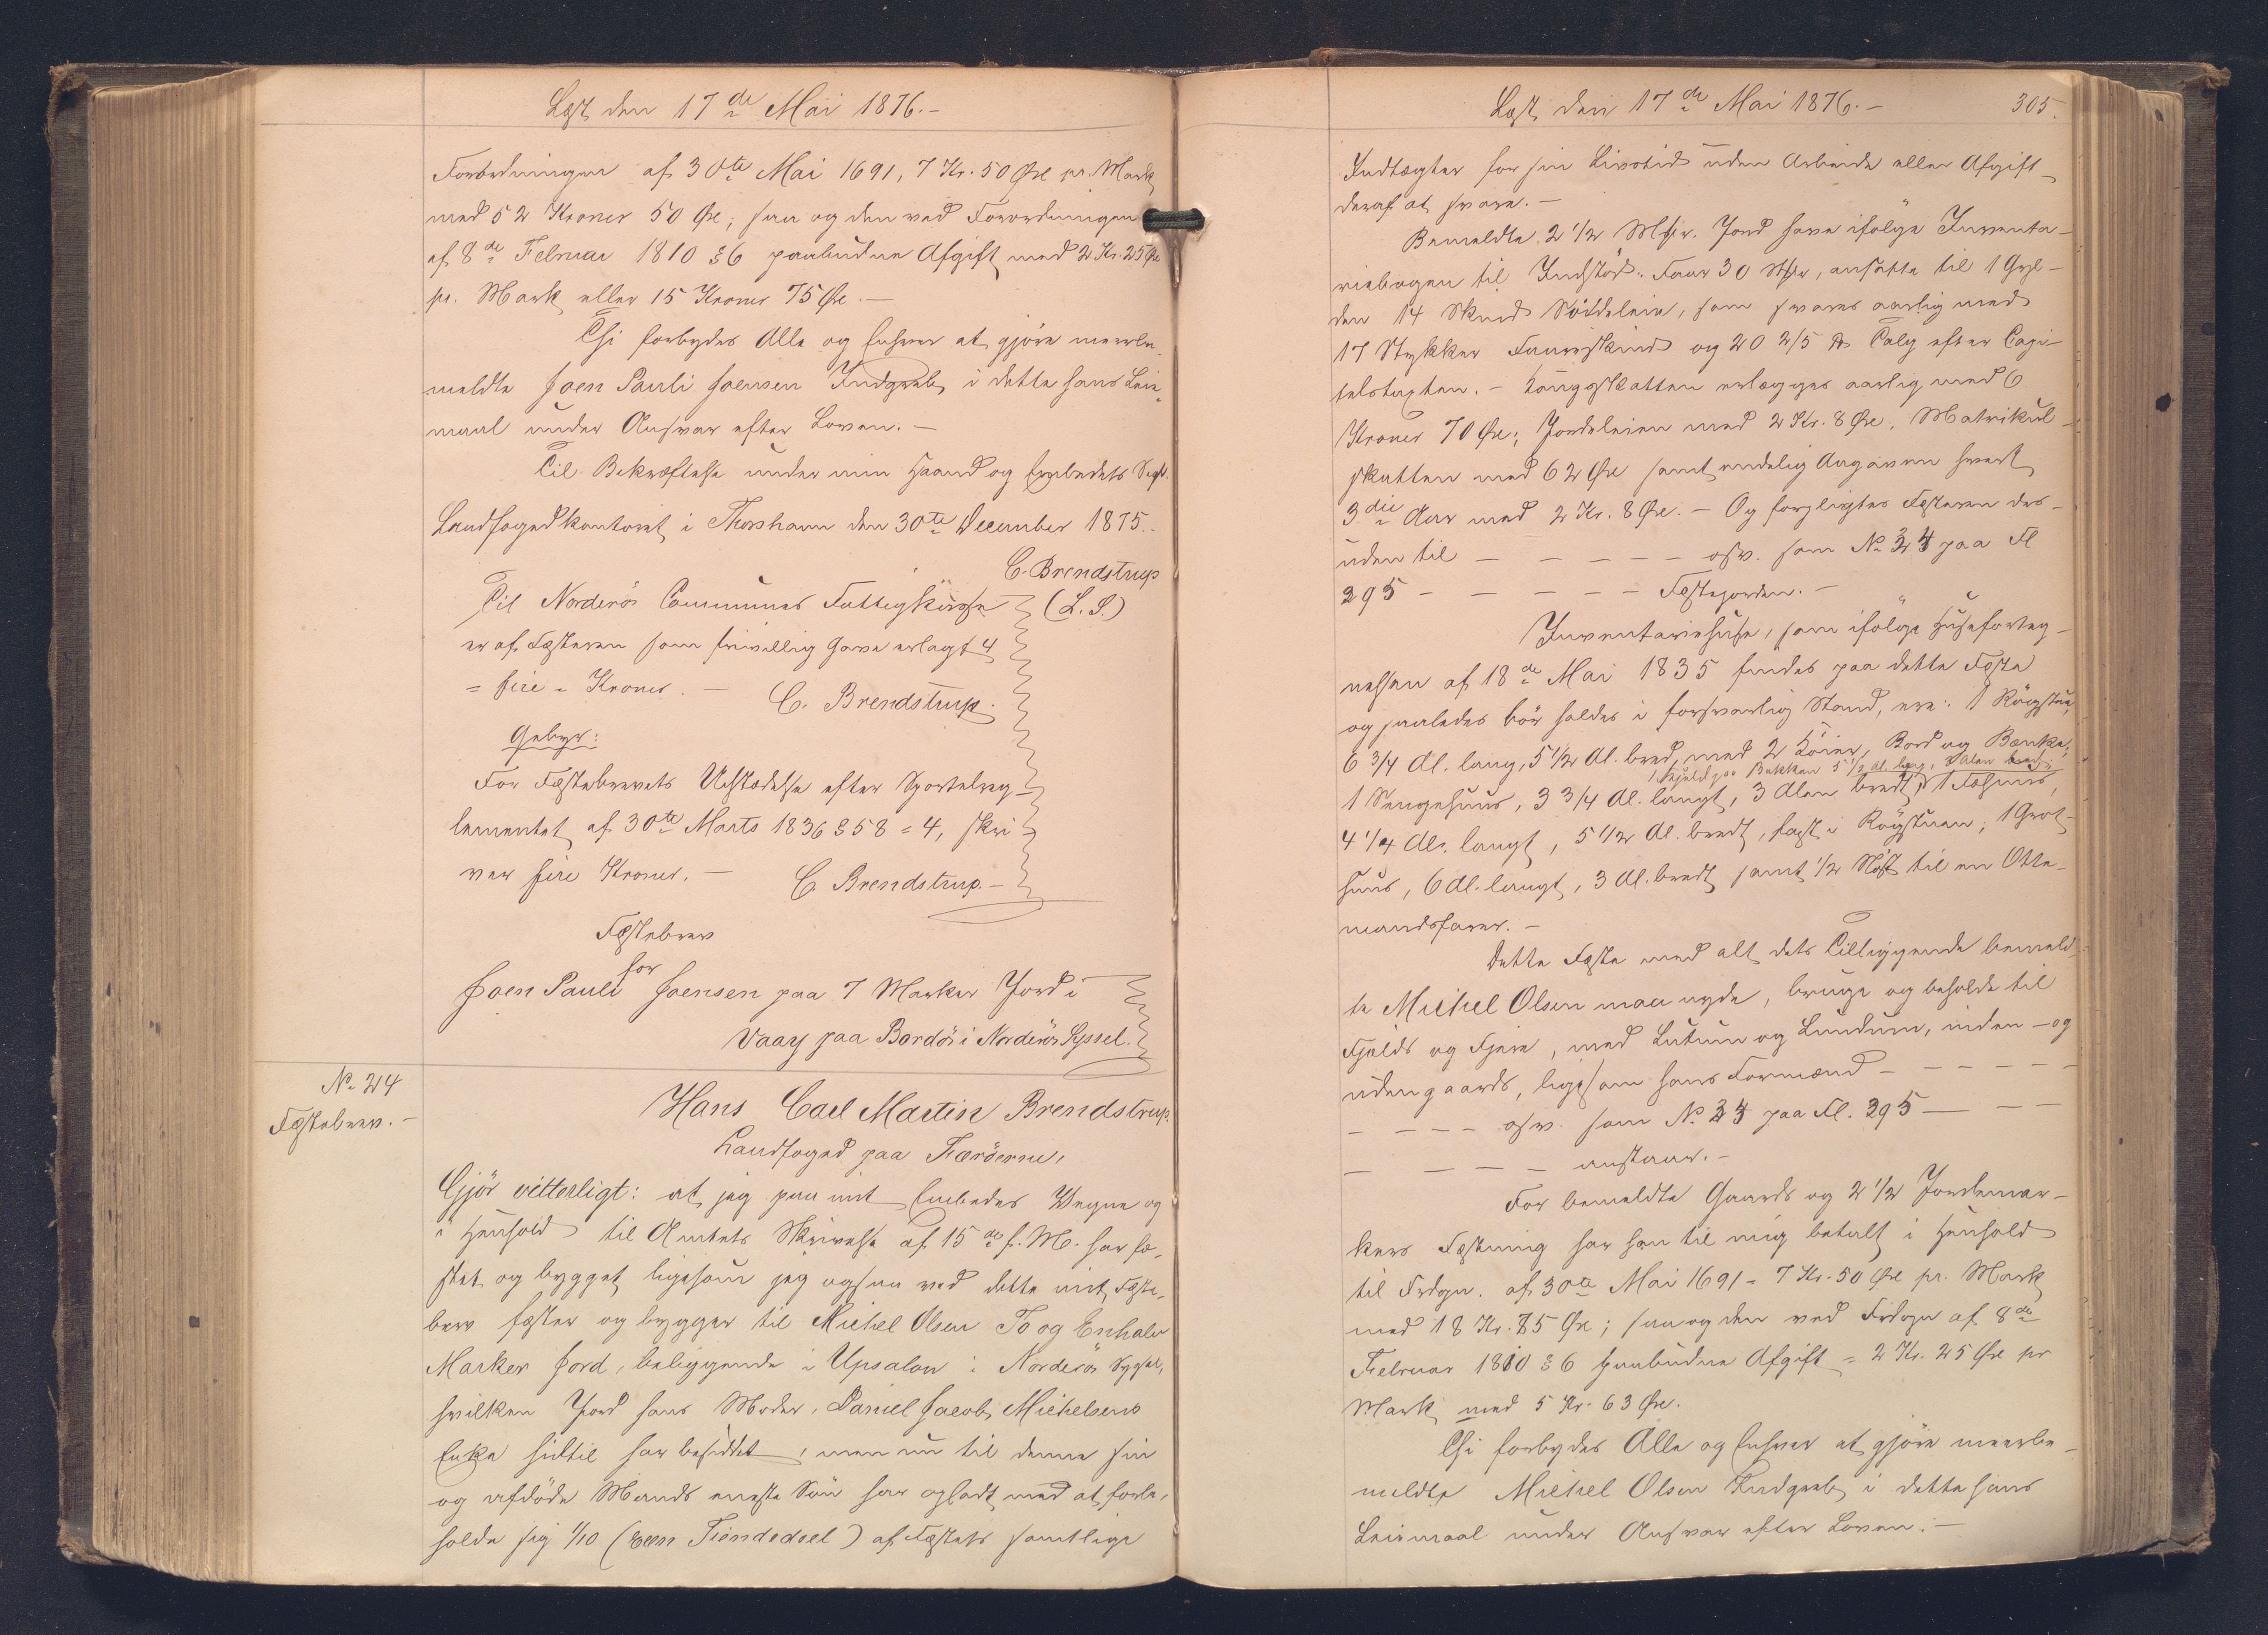 Læst den 17de Mai 1876.-
Forordningen af 30te Mai 1691, 7 Kr. 50 Øre pr. Mark
med 52 Kroner 50 Øre; saa og den ved Forordningen
af 8de Februar 1810 § 6 paabudne Afgift med 2 Kr. 25 Øre
pr. Mark eller 15 Kroner 75 Øre.-
Thi forbydes Alle og Enhver at gjöre meerbe-
meldte Joen Pauli Joensen Indgreb i dette hans Leie-
maal under Ansvar efter Loven.-
Til Bekræftelse under min Haand og Embedets Segl.
Landfogedkontoret i Thorshavn den 30te December 1875.
C. Brendstrup
(L.S.)
Til Norderös Communes Fattigkasse
er af Fæsteren som frivillig Gave erlagt 4
= fire = Kroner.- C. Brendstrup.
Gebyr:
For Fæstebrevets Udstædelse efter Sportelreg-
lementet af 30te Marts 1836 § 58 = 4, skri-
ver fire Kroner.- C. Brendstrup.-
Fæstebrev
for
Joen Pauli Joensen paa 7 Marker Jord i
Vaag paa Bordö i Norderös Syssel.
No 24
Fæstebrev.-
Hans Carl Martin Brendstrup,
Landfoged paa Færöerne,
Gjör vitterligt: at jeg paa mit Embedes Vegne og
i Henhold til Amtets Skrivelse af 15de f. M. har fæ-
stet og bygget ligesom jeg ogsaa ved dette mit Fæste-
brev fæster og bygger til Michel Olsen To og Enhalv
Marker Jord, beliggende i Upsalon i Norderös Syssel,
hvilken Jord hans Moder, Daniel Jacob Michelsens
Enke hidtil har besiddet, men nu til denne sin
og afdöde Mands eneste Sön har opladt med at forbe-
holde sig 1/10 (een Tiendedeel) af Fæstets samtlige
Læst den 17de Mai 1876.- 305.
Indtægter for sin Livstid uden Arbeide eller Afgift
deraf at svare.-
Bemeldte 2 1/2 Mkr. Jord have ifölge Inventa-
riebogen til Indstöd: Faar 30 Stkr, ansatte til 1 Gyl-
den 14 Skind Söideleie, som svares aarlig med
17 Stykker Faareskind og 20 2/5 ℔ Talg efter Capi-
telstaxten.- Kongsskatten erlægges aarlig med 6
Kroner 70 Øre; Jordeleien med 2 Kr. 8 Øre, Matrikul-
skatten med 62 Øre samt endelig Aargaven hvert
3die Aar med 2 Kr. 8 Øre.- Og forpligtes Fæsteren des-
uden til - - - - - osv. som No 24 paa Fl
295 - - - - - Fæstejorden.-
Inventariehuse, som ifölge Huseforteg-
nelsen af 18de Mai 1835 findes paa dette Fæste
og saaledes bör holdes i forsvarlig Stand, ere: 1 Rögstue,
6 3/4 Al. lang, 5 1/2 Al. bred, med 2 Köier, Bord og Bænke;
1 Hjeld paa Bakken 5 1/2 Al. lang, 3 Alen bred;
1 Sengehuus, 3 3/4 Al. langt, 3 Alen bredt; 1 Fæhuus,
4 1/4 Al. langt, 5 1/2 Al. bredt, fast i Rögstuen; 1 Grot-
huus, 6 Al. langt, 3 Al. bredt samt 1/2 Nöst til en Otte-
mandsfarer.-
Dette Fæste med alt dets Tilliggende bemeld-
te Michel Olsen maa nyde, bruge og beholde til
Fjelds og Fjære, med Lutum og Lundum, inden- og
udengaards, ligesom hans Formænd - - - - -
- - - - osv. som No 24 paa Fl. 295 - - -
- - - - - anstaaer.-
For bemeldte Gaards og 2 1/2 Jordemar-
kers Fæstning har han til mig betalt i Henhold
til Frdgn. af 30te Mai 1691 = 7 Kr. 50 Øre pr. Mark
med 18 Kr. 75 Øre; saa og den ved Frdgn af 8de
Februar 1810 § 6 paabudne Afgift = 2 Kr. 25 Øre pr
Mark med 5 Kr. 63 Øre.
Thi forbydes Alle og Enhver at gjöre meerbe-
meldte Michel Olsen Indgreb i dette hans
Leiemaal under Ansvar efter Loven.-